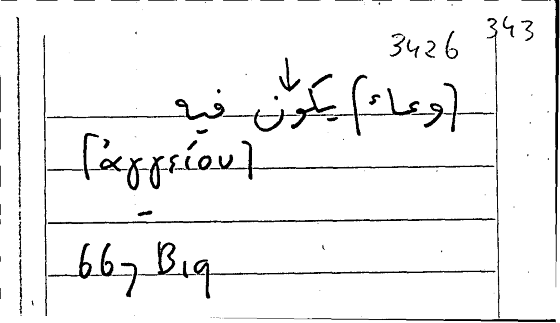 343
3426
↓
[وعاء] يكون فيه
[ἀγγείου]
–
667 B19